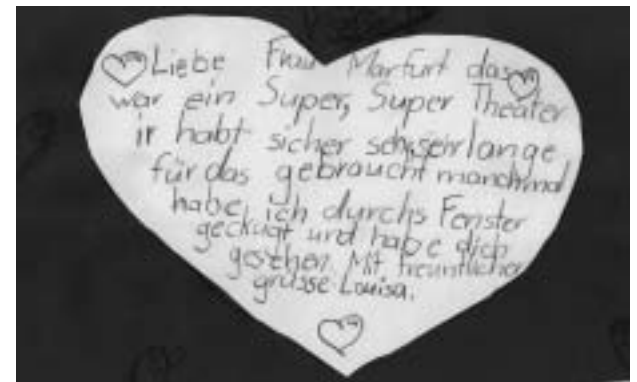 Liebe Frau Marfurt das
war ein Super, Super Theater
ir habt sicher sehr, sehr lange
für das gebraucht manchmal
habe ich durchs Fenster
gekugt und habe dich
gesehen. Mit freuntlicher
grüsse Louisa.